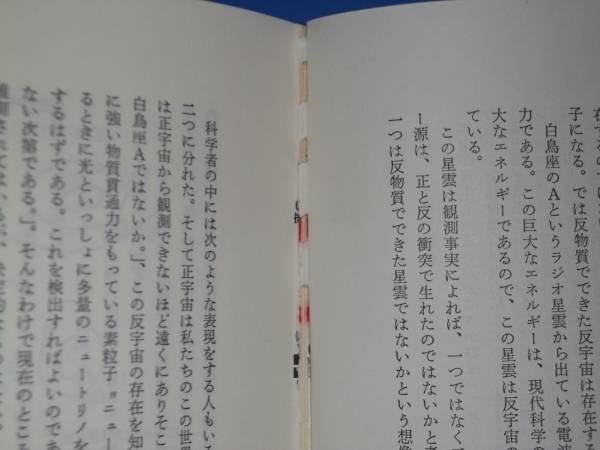 在するの
子になる。では反物質でできた反宇宙は存在する
白鳥座のAというラジオ星雲から出ている電波
力である。この巨大なエネルギーは、現代科学の
大なエネルギーであるので、この星雲は反宇宙の
ている。
この星雲は観測事実によれば、一つではなく
ー源は、正と反の衝突で生れたのではないかと
一つは反物質でできた星雲ではないかという想像
科学者の中には次のような表現をする人もいる
二つに分れた。そして正宇宙は私たちのこの世界
は正宇宙から観測できないほど遠くにありそこ
白鳥座Aではないか。」、この反宇宙の存在を知
に強い物質貫通力をもっている素粒子〝ニュー
るときに光といっしょに多量のニュートリノを
するはずである。これを検出すればよいのであ
ない次第である。」。そんなわけで現在のところ
推測されてはいるが、決定的な